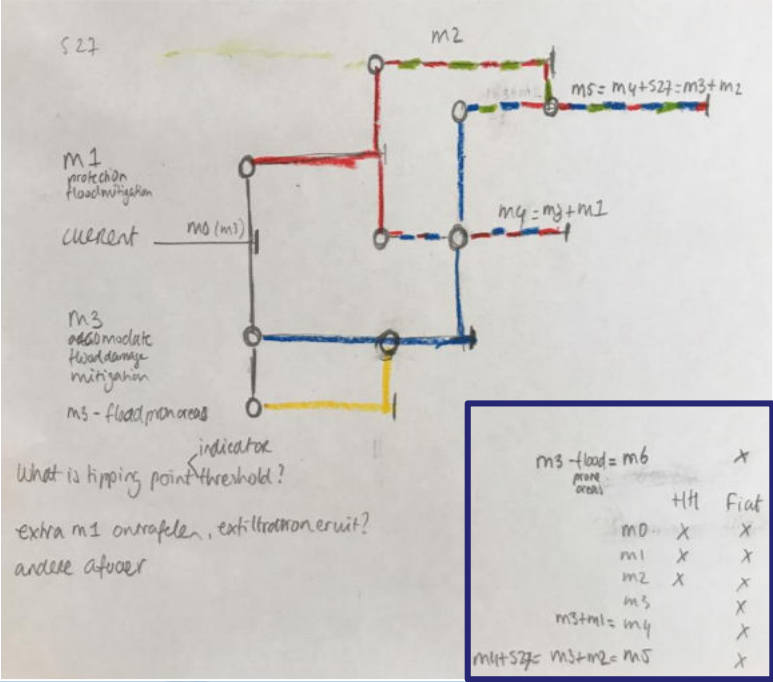 S27
m2
m5 = m4+S27 = m3+m2
m1
protection
floodmitigation
m4 = m3+m1
current
m0 (m3)
m3
accomodate
flood damage
mitigation
m3 - flood pron areas
indicator
What is tipping point threshold?
extra m1 ontrafelen, exfiltration eruit?
andere afvoer
m3 - flood = m6 x
prone
areas
HH Fiat
m0 x x
m1 x x
m2 x x
m3 x
m3+m1 = m4 x
m4+S27 = m3+m2 = m5 x